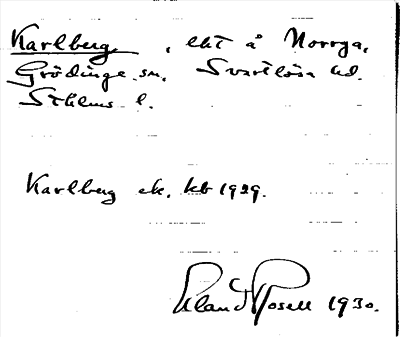 Karlberg, lht å Norrga,
Grödinge sn. Svartlösa hd.
Sthlms l.
Karlberg ek. kb 1929.
Erland Rosell 1930.